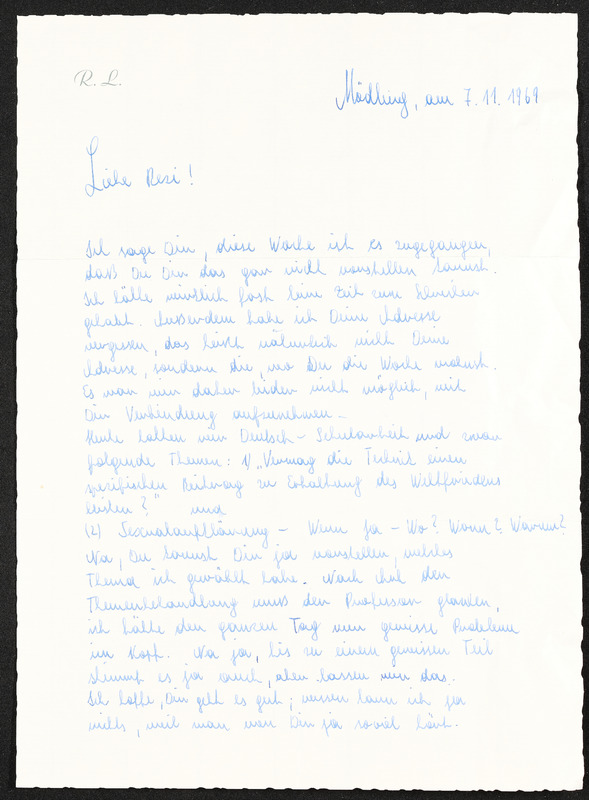 R. L.
Mödling, am 7.11.1969
Liebe Resi!
Ich sage Dir, diese Woche ist es zugegangen,
daß Du Dir das gar nicht vorstellen kannst.
Ich hätte wirklich fast keine Zeit zum Schreiben
gehabt. Außerdem habe ich Deine Adresse
vergessen, das heißt nämlich nicht Deine
Adresse, sondern die, wo Du die Woche wohnst.
Es war mir daher leider nicht möglich, mit
Dir Verbindung aufzunehmen.
Heute hatten wir Deutsch-Schularbeit und zwar
folgende Themen: 1) „Vermag die Technik einen
spezifischen Beitrag zu Erhaltung des Weltfriedens
leisten?" und
(2) Sexualaufklärung - Wenn ja - Wo? Wann? Warum?
Na, Du kannst Dir ja vorstellen, welches
Thema ich gewählt habe. Nach der
Themenbehandlung muß der Professor glauben,
ich hätte den ganzen Tag nur gewisse Probleme
im Kopf. Na ja, bis zu einem gewissen Teil
stimmt es ja auch, aber lassen wir das.
Ich hoffe, Dir geht es gut; wissen kann ich ja
nichts, weil man von Dir ja soviel hört.